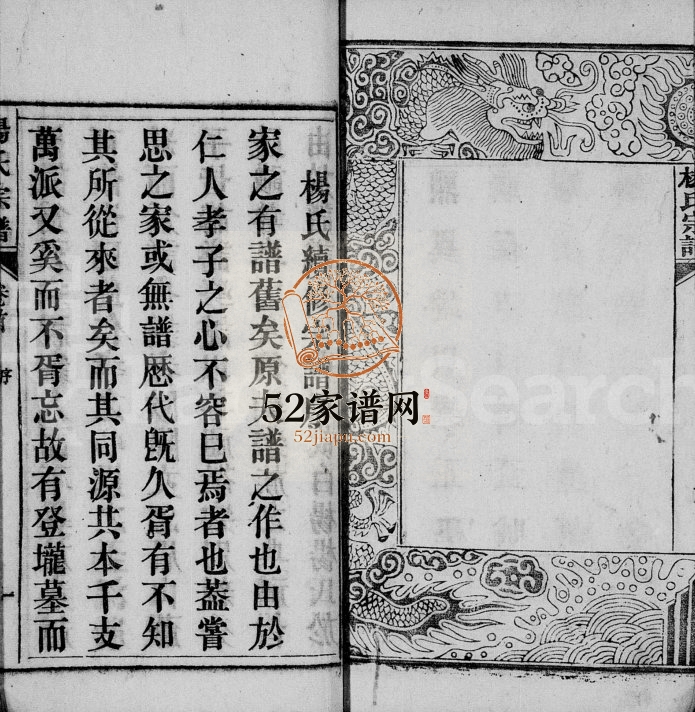 楊氏宗譜
楊氏續修宗譜
家之有譜舊矣原夫譜之作也由於
仁人孝子之心不容已焉者也葢嘗
思之家或無譜歷代旣久胥有不知
其所從來者矣而其同源共本千支
萬派又奚而不胥忘故有登壠墓而
楊氏宗譜
卷首
序
一
52家谱网
52jiapu.com
Search